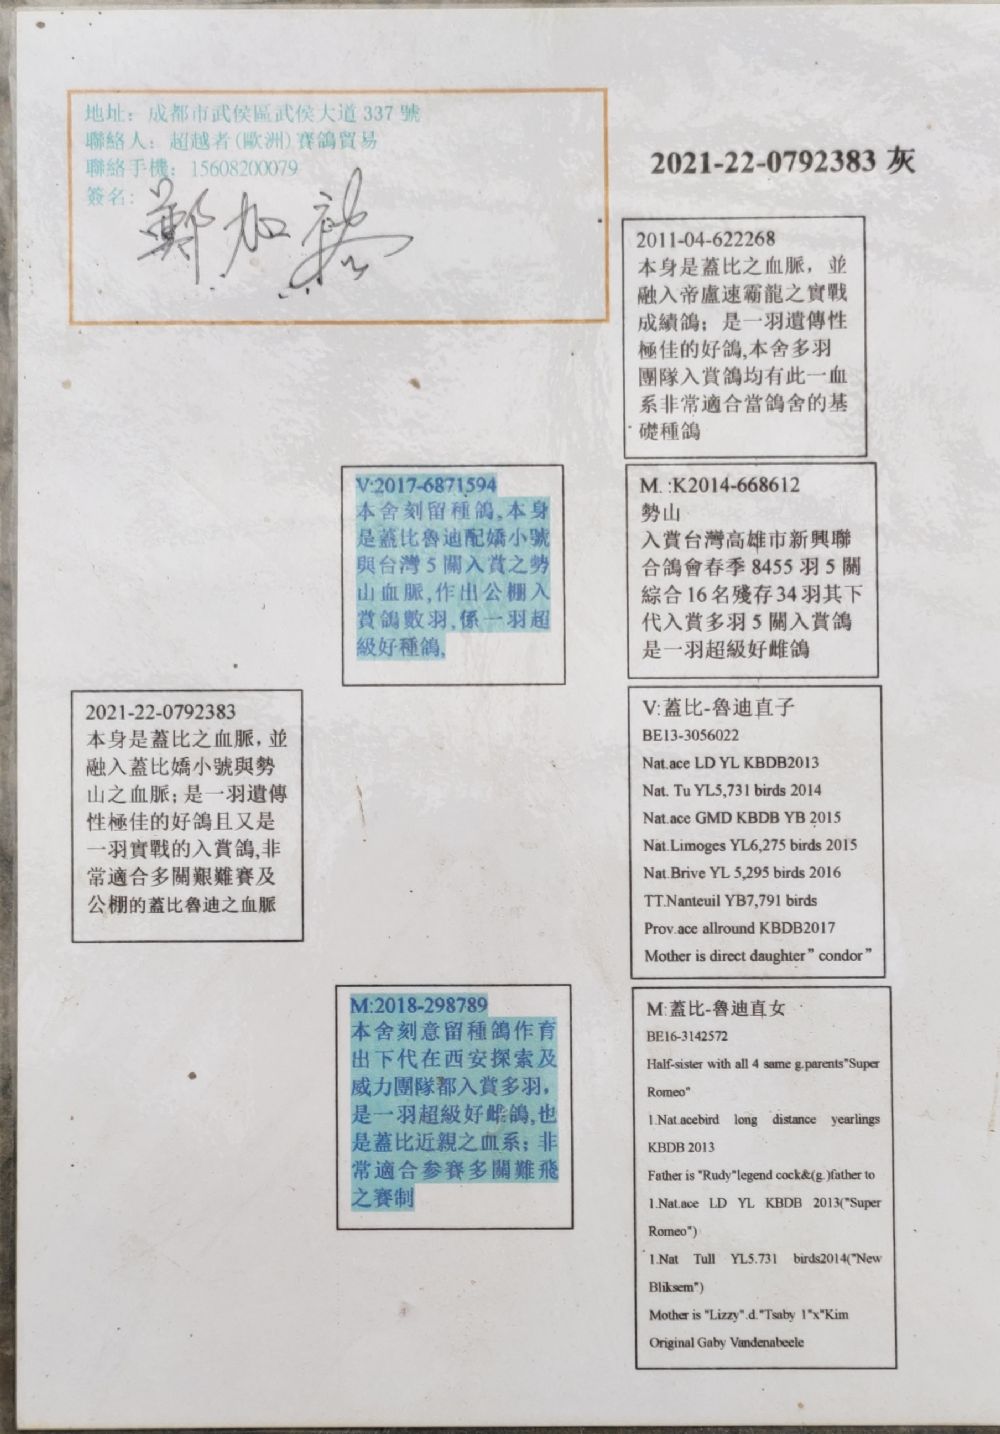 地址：成都市武侯區武侯大道 337 號
聯絡人：超越者(歐洲)賽鴿貿易
聯絡手機：15608200079
簽名：
鄭加
2021-22-0792383 灰
2011-04-622268
本身是蓋比之血脈，並
融入帝盧速霸龍之實戰
成績鴿；是一羽遺傳性
極佳的好鴿,本舍多羽
團隊入賞鴿均有此一血
系非常適合當鴿舍的基
礎種鴿
V:2017-6871594
本舍刻留種鴿,本身
是蓋比魯迪配嬌小號
與台灣 5 關入賞之勢
山血脈,作出公棚入
賞鴿數羽,係一羽超
級好種鴿,
M. :K2014-668612
勢山
入賞台灣高雄市新興聯
合鴿會春季 8455 羽 5 關
綜合 16 名殘存 34 羽其下
代入賞多羽 5 關入賞鴿
是一羽超級好雌鴿
2021-22-0792383
本身是蓋比之血脈，並
融入蓋比嬌小號與勢
山之血脈；是一羽遺傳
性極佳的好鴿且又是
一羽實戰的入賞鴿,非
常適合多關艱難賽及
公棚的蓋比魯迪之血脈
V:蓋比-魯迪直子
BE13-3056022
Nat.ace LD YL KBDB2013
Nat. Tu YL5,731 birds 2014
Nat.ace GMD KBDB YB 2015
Nat.Limoges YL6,275 birds 2015
Nat.Brive YL 5,295 birds 2016
TT.Nanteuil YB7,791 birds
Prov.ace allround KBDB2017
Mother is direct daughter" condor"
M:2018-298789
本舍刻意留種鴿作育
出下代在西安探索及
威力團隊都入賞多羽，
是一羽超級好雌鴿,也
是蓋比近親之血系；非
常適合參賽多關難飛
之賽制
M:蓋比-魯迪直女
BE16-3142572
Half-sister with all 4 same g.parents"Super
Romeo"
1.Nat.acebird long distance yearlings
KBDB 2013
Father is "Rudy"legend cock&(g.)father to
1.Nat.ace LD YL KBDB 2013("Super
Romeo")
1.Nat Tull YL5.731 birds2014("New
Bliksem")
Mother is "Lizzy".d."Tsaby 1"x"Kim
Original Gaby Vandenabeele